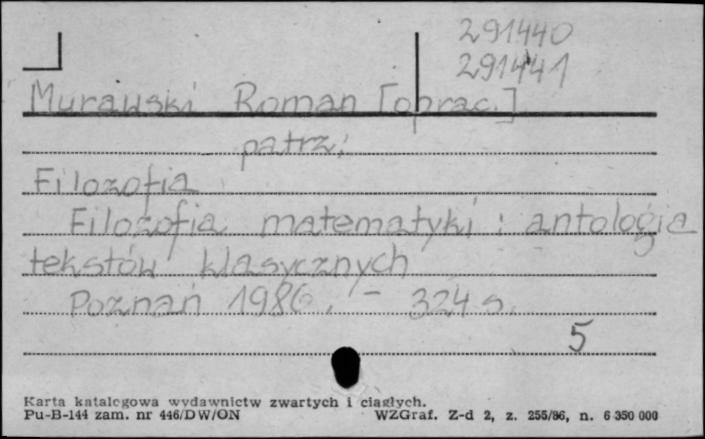 291440
291441
Murawski Roman [oprac.]
patrz:
Filozofia
Filozofia matematyki : antologia
tekstów klasycznych
Poznań 1986. - 324 s.
5
Karta katalogowa wydawnictw zwartych i ciągłych.
Pu-B-144 zam. nr 446/DW/ON WZGraf. Z-d 2, z. 255/86, n. 6 350 000